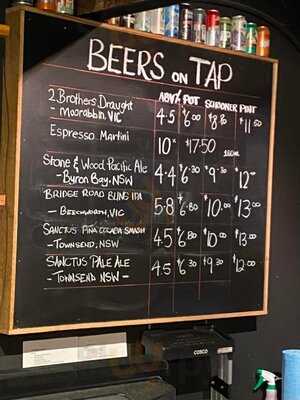 BEERS ON TAP
ABV% POT SCHOONER PINT
2 Brothers Draught
- Moorabbin, VIC 4.5 $6.00 $8.80 $11.50
Espresso Martini 10% $17.50
Stone & Wood Pacific Ale
- Byron Bay, NSW 4.4 $6.30 $9.30 $12.00
BRIDGE ROAD BLING IPA
- BEECHWORTH, VIC 5.8 $6.80 $10.00 $13.00
SANCTUS PIÑA COLADA SMASH
- TOWNSEND, NSW 4.5 $6.80 $10.00 $13.00
SANCTUS PALE ALE
- TOWNSEND NSW - 4.5 $6.30 $9.30 $12.00
COSCO